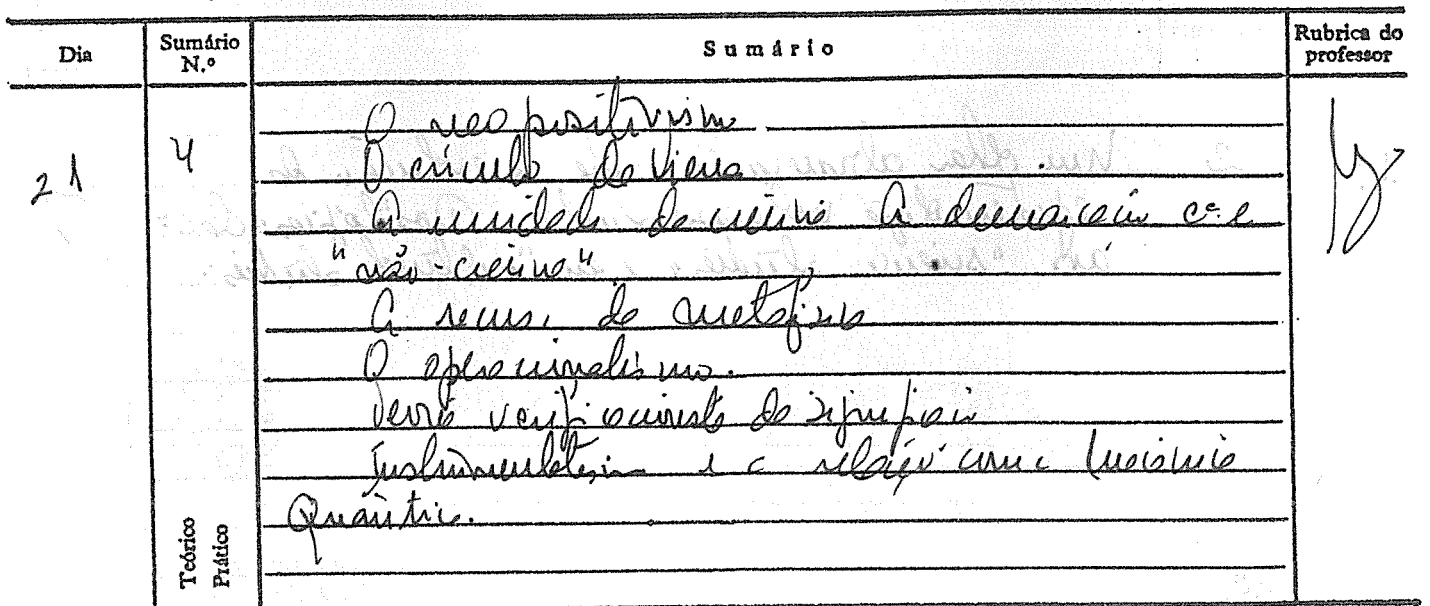 Dia
Sumário N.º
Sumário
Rubrica do professor
21
4
O neopositivismo
O círculo de Viena
A unidade da ciência A demarcação c.ª e
"não-ciência"
A recusa da metafísica
O operacionalismo.
Teoria verificacionista da significação
Instrumentalismo e a relação com a Mecânica
Quântica.
Teórico
Prático